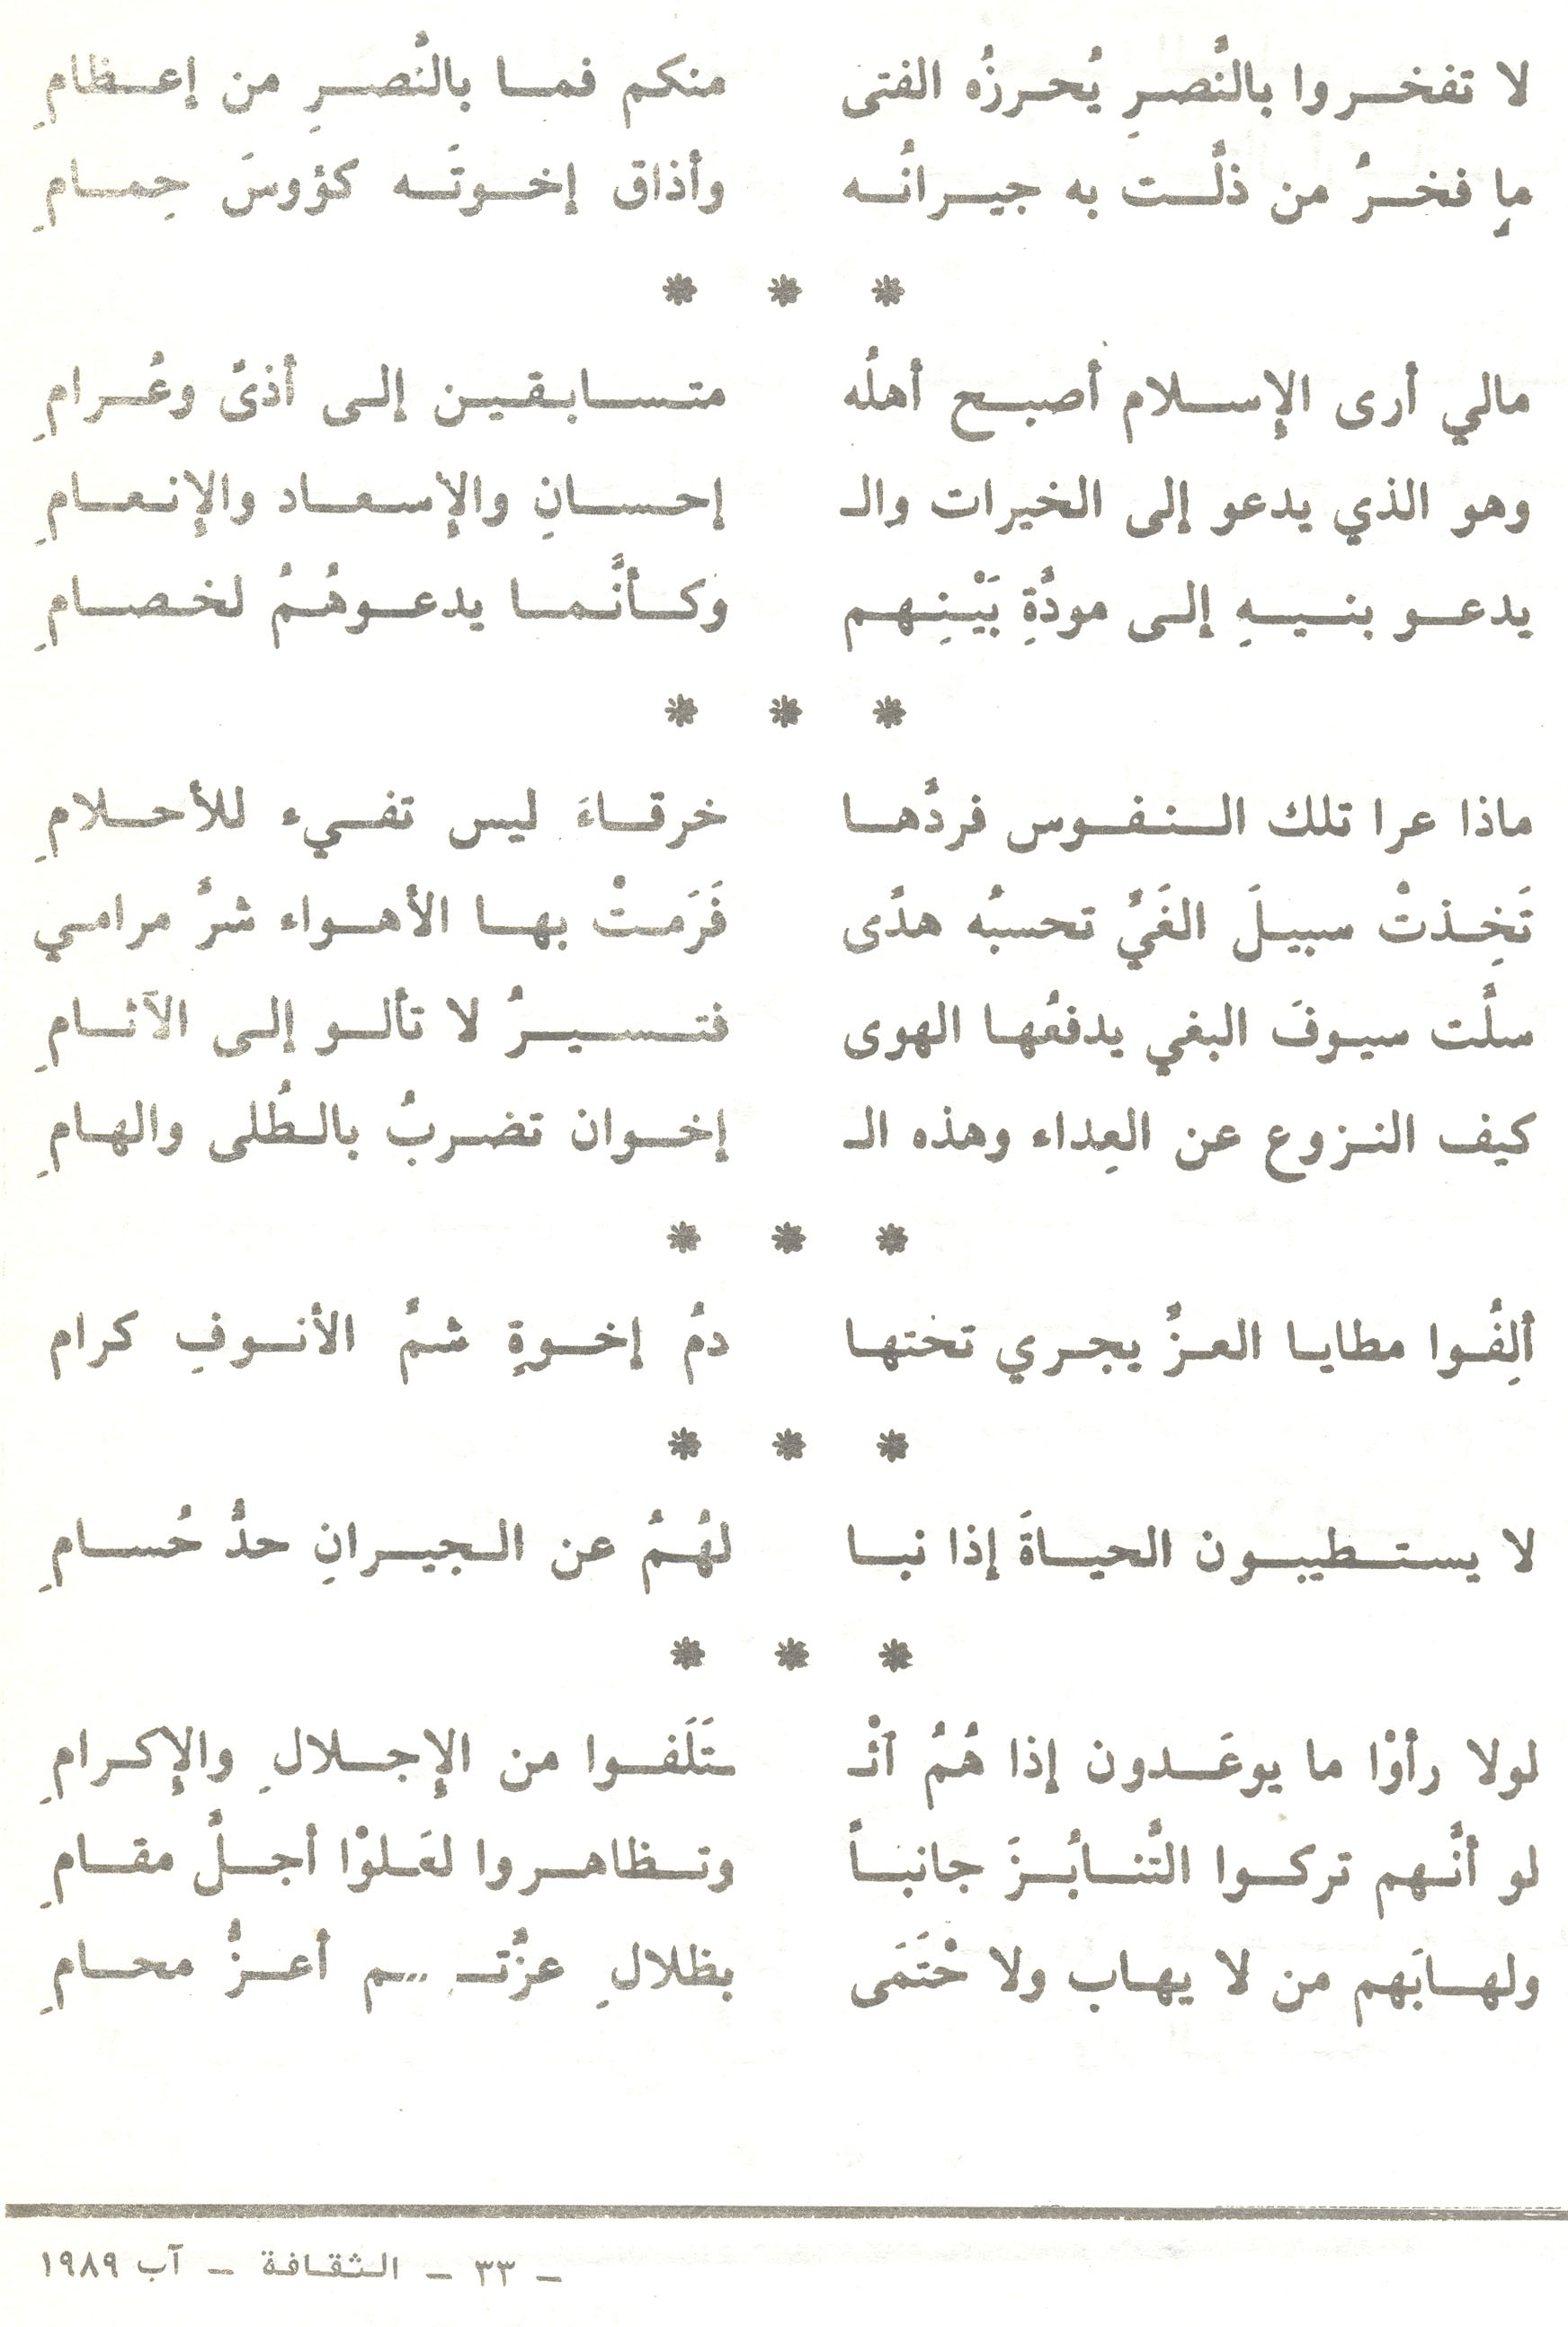 لا تفخروا بالنَّصرِ يُحرزُه الفتى    منكم فما بالنَّصرِ من إعظامِ
ما فخرُ من ذلَّت به جيرانُه    وأذاق إخوتَه كؤوسَ حِمامِ
* * *
مالي أرى الإسلام أصبح أهلُه    متسابقين إلى أذىً وعُرامِ
وهو الذي يدعو إلى الخيرات والـ    إحسانِ والإسعاد والإنعامِ
يدعو بنيهِ إلى مودَّةِ بَيْنِهم    وكأنَّما يدعوهُمُ لخصامِ
* * *
ماذا عرا تلك النفوس فردَّها    خرقاءَ ليس تفيء للأحلامِ
تَخِذتْ سبيلَ الغَيِّ تحسبُه هدًى    فَرَمتْ بها الأهواء شرَّ مرامي
سلَّت سيوفَ البغي يدفعُها الهوى    فتسيرُ لا تألو إلى الآثامِ
كيف النزوع عن العِداء وهذه الـ    إخوان تضربُ بالطُلى والهامِ
* * *
ألِفُوا مطايا العزِّ يجري تختها    دمُ إخوةٍ شمِّ الأنوفِ كرام
* * *
لا يستطيبون الحياةَ إذا نبا    لهُمُ عن الجيرانِ حدُّ حُسامِ
* * *
لولا رأوْا ما يوعَدون إذا هُمُ ائْـ    ـتَلَفوا من الإجلالِ والإكرامِ
لو أنَّهم تركوا التَّنابُزَ جانباً    وتظاهروا لعَلوْا أجلَّ مقامِ
ولهابَهم من لا يهاب ولا حْتَمَى    بظلالِ أعزُّ محامِ
ـ ٣٣ ـ الثقافة ـ آب ١٩٨٩